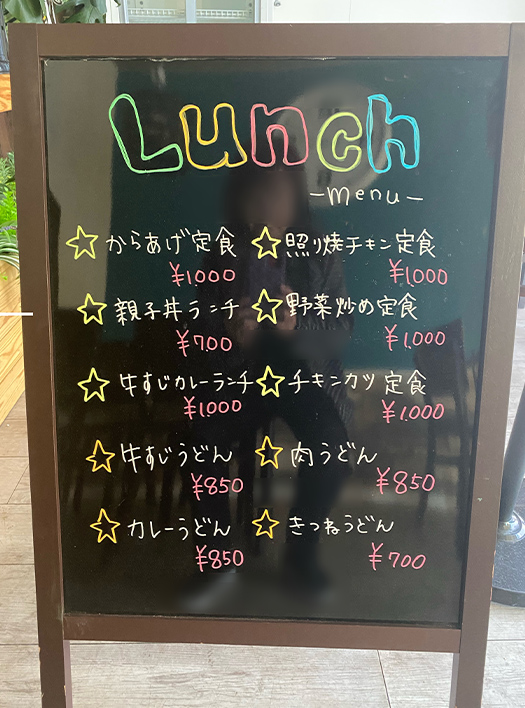 Lunch
-menu-
☆からあげ定食
¥1000
☆親子丼ランチ
¥700
☆牛すじカレーランチ
¥1000
☆牛すじうどん
¥850
☆カレーうどん
¥850
☆照り焼チキン定食
¥1,000
☆野菜炒め定食
¥1,000
☆チキンカツ定食
¥1.000
☆肉うどん
¥850
☆きつねうどん
¥700